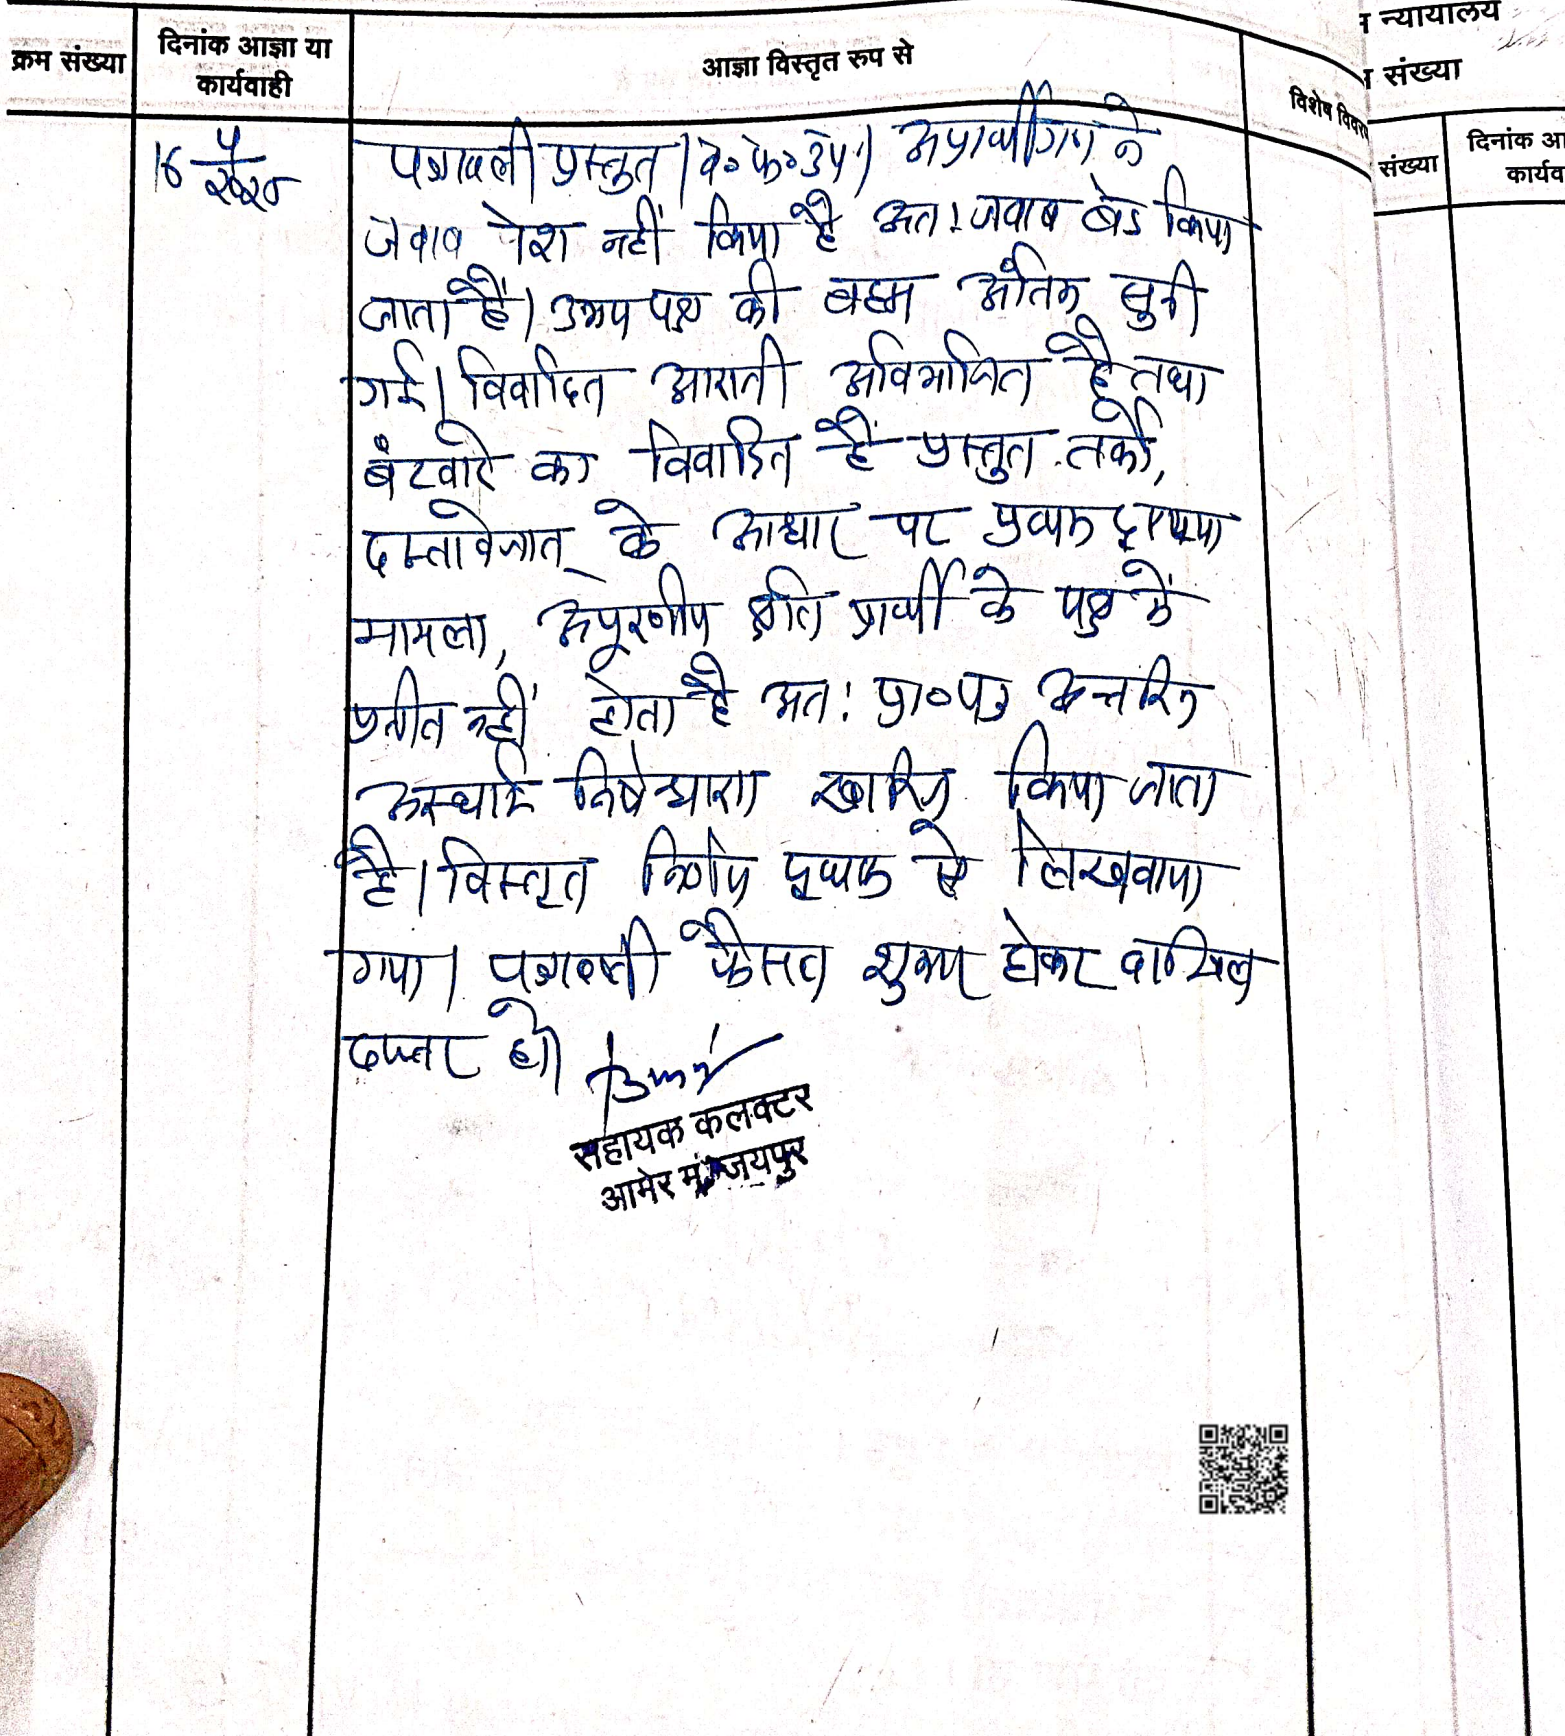 न्यायालय
संख्या
क्रम संख्या
दिनांक आज्ञा या
कार्यवाही
आज्ञा विस्तृत रुप से
विशेष विवरण
संख्या
दिनांक आ
कार्यव
16
पत्रावली प्रस्तुत। व०फ०उप०। अप्रार्थीगण ने
जवाब पेश नहीं किया है अत: जवाब बंद किया
जाता है। उभय पक्ष की बहस अंतिम सुनी
गई। विवादित आराजी अविभाजित है तथा
बंटवारे का विवादित है प्रस्तुत तर्को,
दस्तावेजात के आधार पर प्रथम दृष्टया
मामला, अपूरणीय क्षति प्रार्थी के पक्ष में
प्रतीत नहीं होता है अत: प्रा०पत्र अन्तरिम
अस्थाई निषेधाज्ञा खारिज किया जाता
है। विस्तृत निर्णय पृथक से लिखवाया
गया। पत्रावली फैसल शुमार होकर दाखिल
दफ्तर हो।
सहायक कलक्टर
आमेर मु. जयपुर